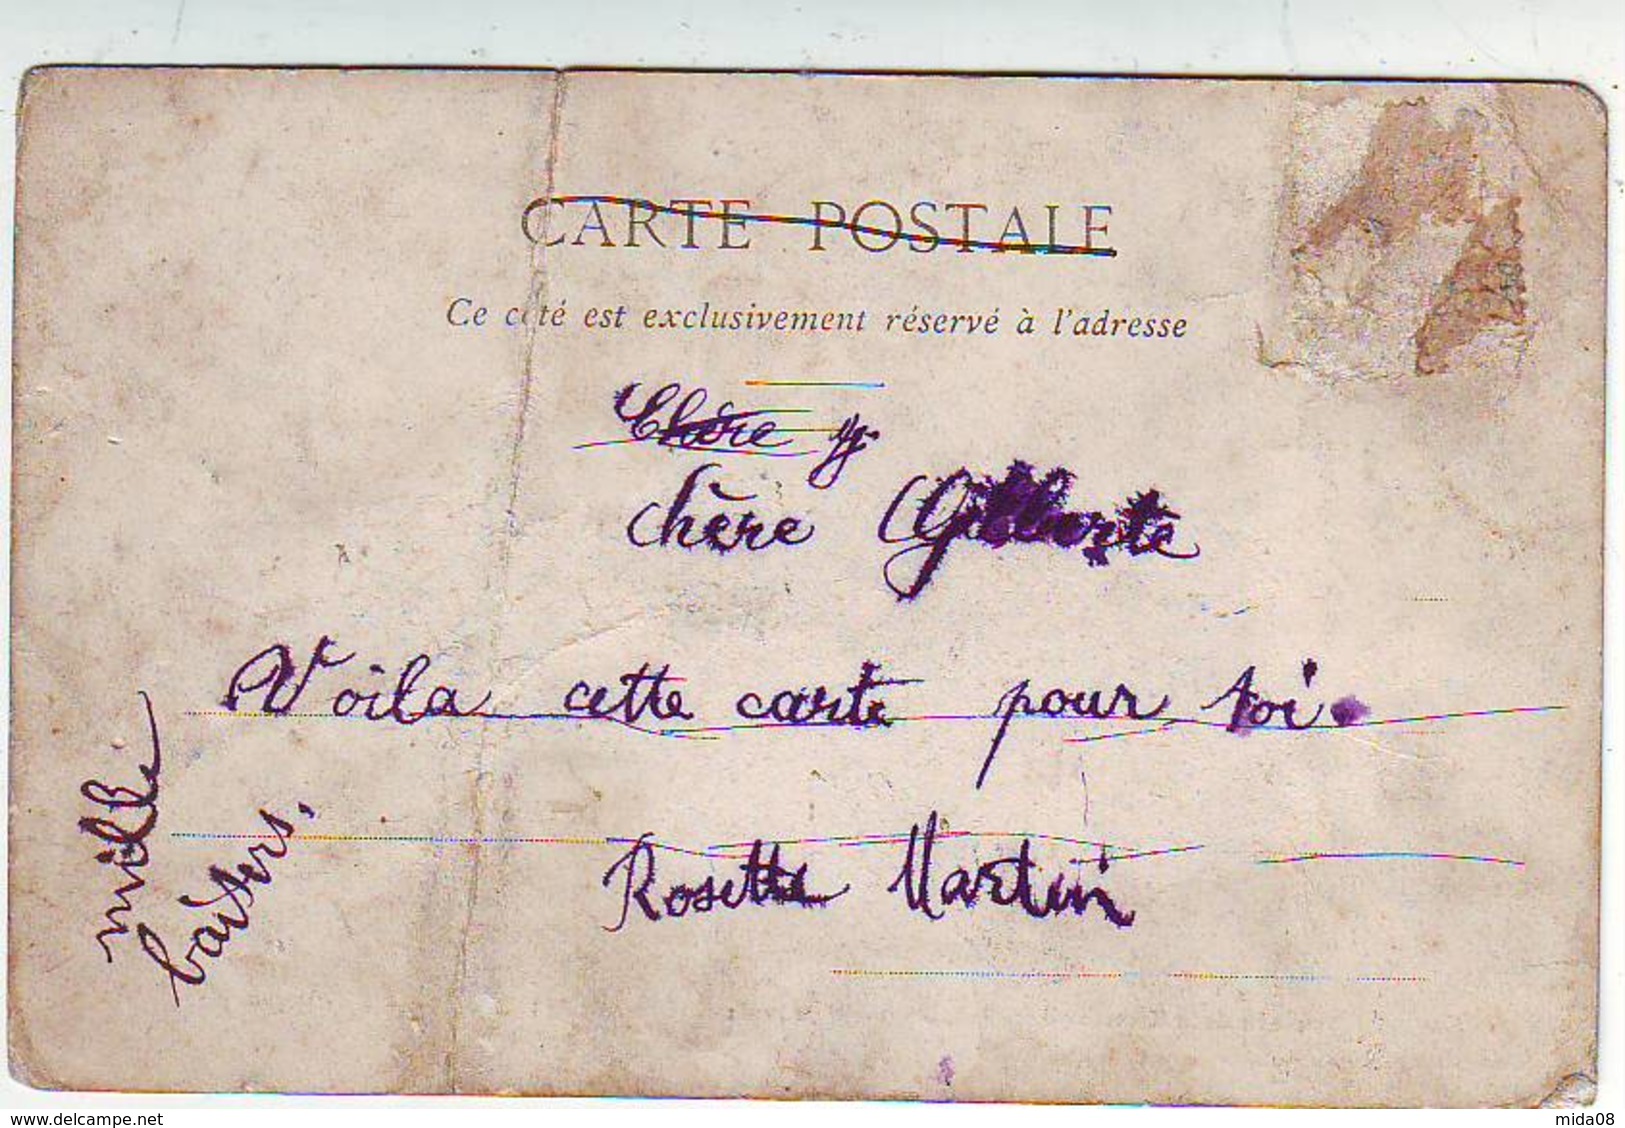 CARTE POSTALE
Ce côté est exclusivement réservé à l'adresse
Chère
chère Gilberte
Voila cette carte pour toi.
Rosette Martin
mille
baisers.
delcampe.net
mida08